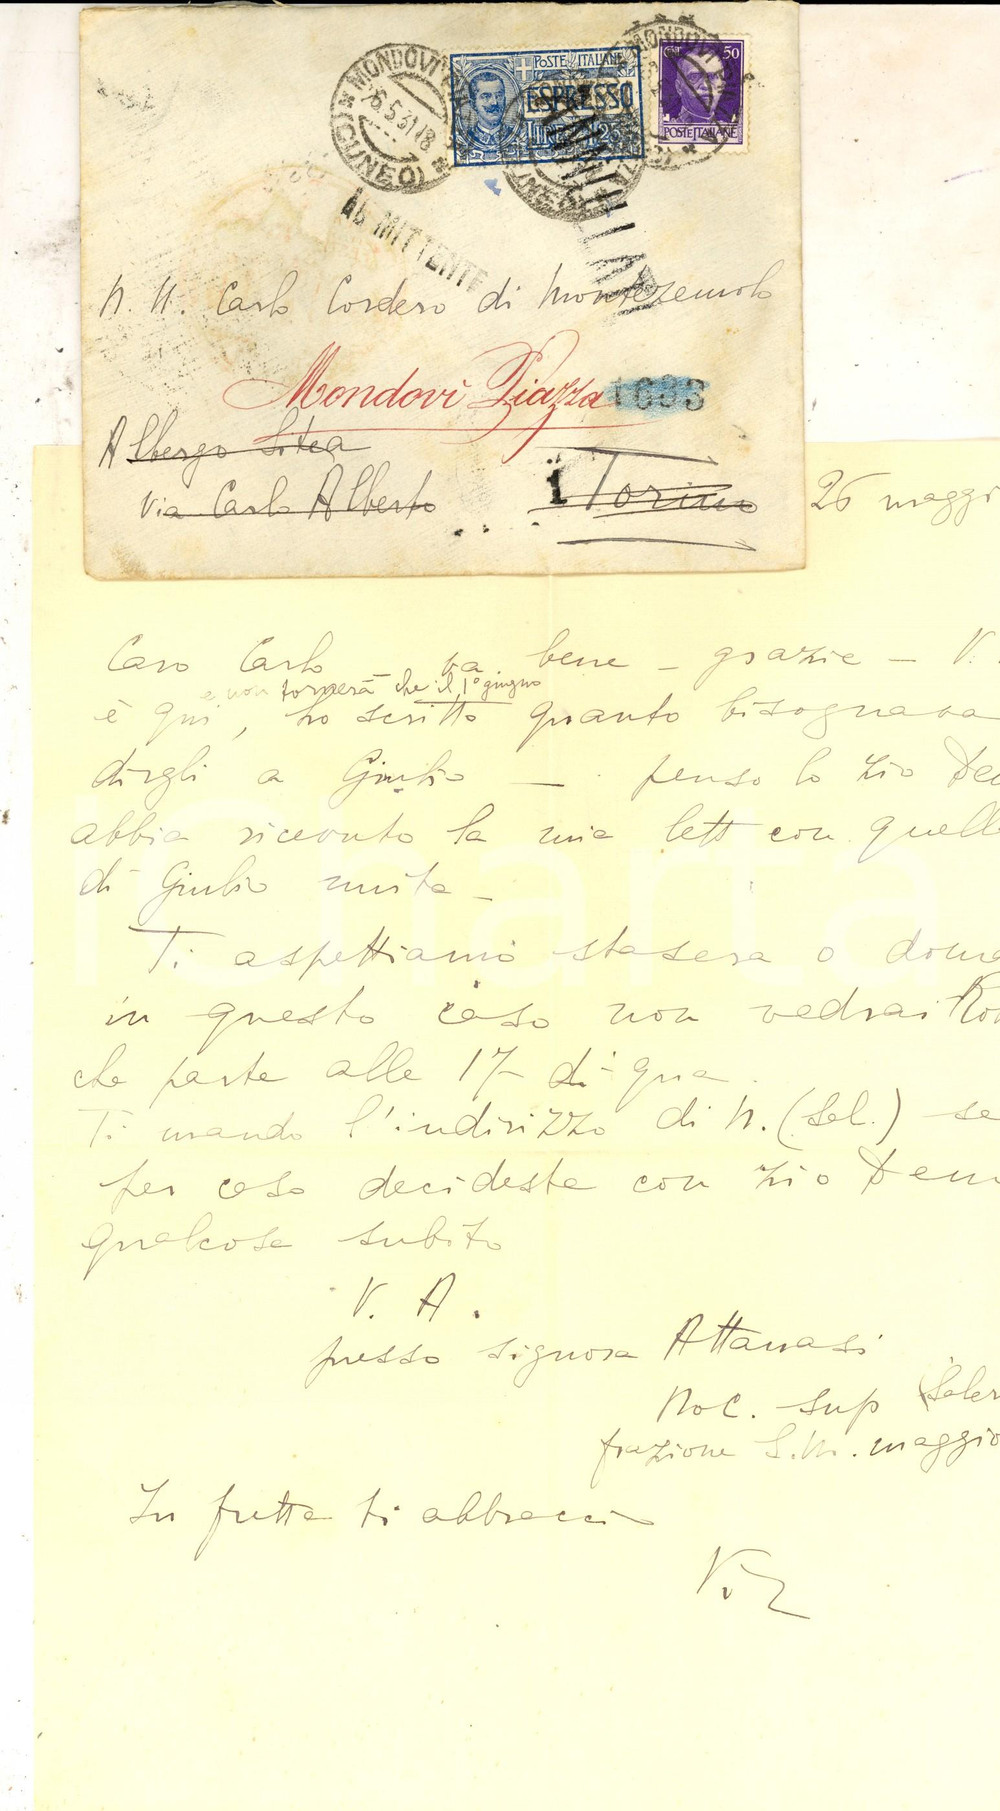 MONDOVI
26.5.31.18
(CUNEO)
POSTE ITALIANE
ESPRESSO
LIRE 1,25
50
POSTE ITALIANE
AL MITTENTE
N. H. Carlo Cordero di Montezemolo
Mondovì Piazza
Albergo Sitea
Via Carlo Alberto
Torino
26 maggi
Caro Carlo – va bene – grazie – V.
e non tornerà che il 1° giugno
è qui, ho scritto quanto bisognava
dirgli a Giulio — penso lo zio
abbia ricevuto la mia lett con quelle
di Giulio unita –
Ti aspettiamo stasera o doma
in questo caso non vedrai
che parte alle 17 di qua.
Ti mando l'indirizzo di N. (Sal.) se
per caso decideste con zio Dem
qualcosa subito
V. A.
presso signora Attanasi
Noc. Sup (Saler
frazione S. M. maggio
In fretta ti abbraccio